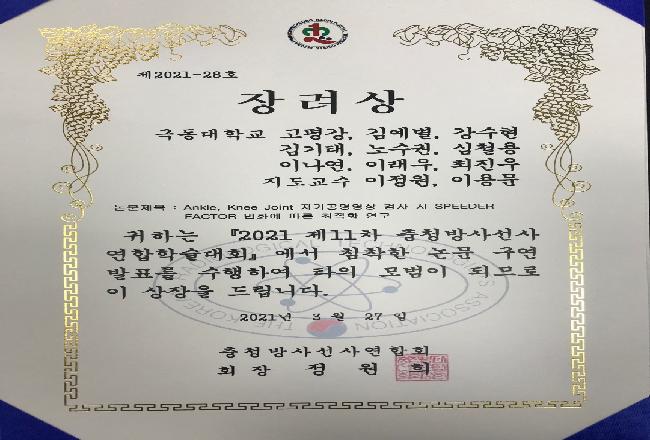 제2021-28호
장려상
극동대학교 고평강, 김예별, 강수현
김기태, 노수권, 심철용
이나연, 이래우, 최진우
지도교수 이정원, 이용문
논문제목 : Ankle, Knee Joint 자기공명영상 검사 시 SPEEDER
FACTOR 변화에 따른 최적화 연구
귀하는 『2021 제11차 충청방사선사
연합학술대회』에서 참작한 논문 구연
발표를 수행하여 타의 모범이 되므로
이 상장을 드립니다.
2021년 3월 27일
충청방사선사연합회
회장 정원희